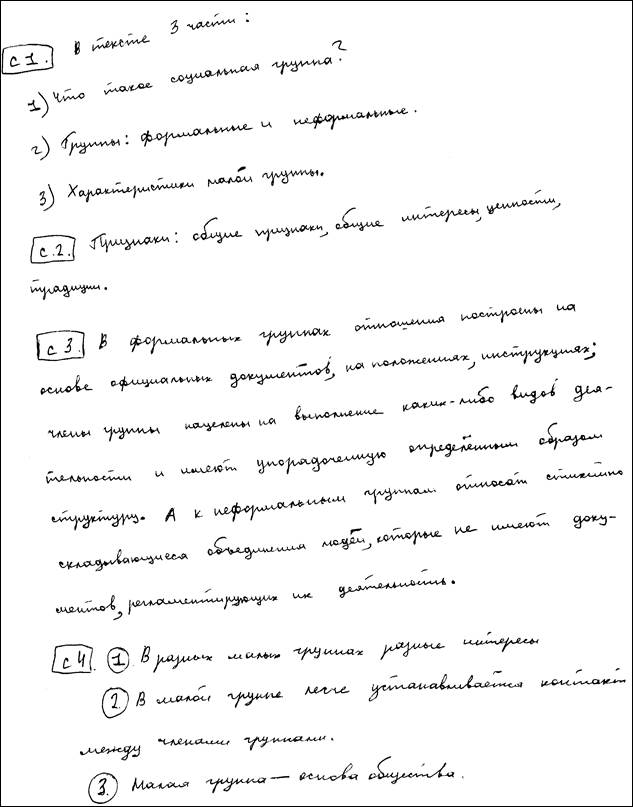 С1. В тексте 3 части:
1) Что такое социальная группа?
2) Группы: формальные и неформальные.
3) Характеристики малой группы.
С.2. Признаки: общие признаки, общие интересы, ценности,
традиции.
С3. В формальных группах отношения построены на
основе официальных документов, на положениях, инструкциях;
члены группы нацелены на выполнение каких-либо видов дея-
тельности и имеют упорядоченную определённым образом
структуру. А к неформальным группам относят стихийно
складывающиеся объединения людей, которые не имеют доку-
ментов, регламентирующих их деятельность.
С4. 1. В разных малых группах разные интересы
2. В малой группе легче устанавливается контакт
между членами группами.
3. Малая группа — основа общества.